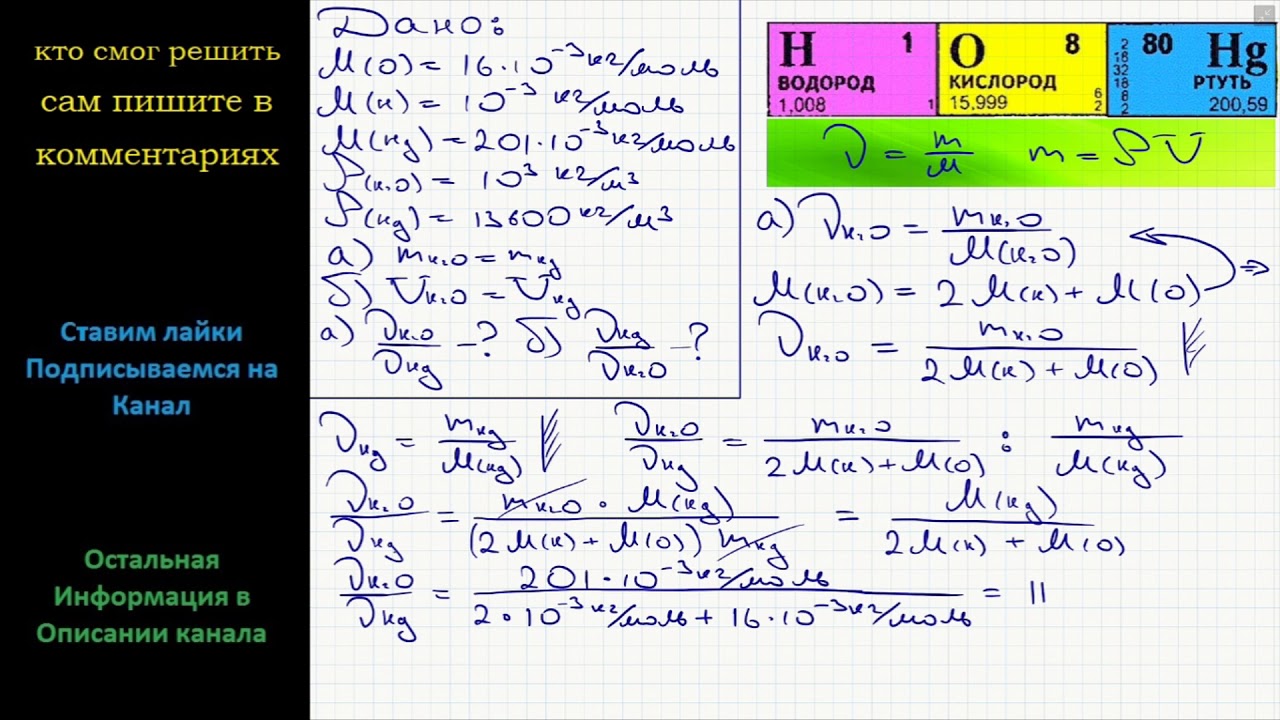 кто смог решить
сам пишите в
комментариях
Ставим лайки
Подписываемся на
Канал
Остальная
Информация в
Описании канала
Дано:
M(O) = 16·10⁻³ кг/моль
M(н) = 10⁻³ кг/моль
M(нg) = 201·10⁻³ кг/моль
ρ(н₂O) = 10³ кг/м³
ρ(нg) = 13600 кг/м³
а) mн₂O = mнg
б) Vн₂O = Vнg
а) νн₂O/νнg – ? б) νнg/νн₂O – ?
H 1
ВОДОРОД
1,008 1
O 8
КИСЛОРОД
15,999 6 2
2 18 32 18 8 2
80 Hg
РТУТЬ
200,59
ν = m/M m = ρV
а) νн₂O = mн₂O/M(н₂O)
M(н₂O) = 2M(н) + M(O) ⇒
νн₂O = mн₂O/(2M(н) + M(O))
νнg = mнg/M(нg) νн₂O/νнg = mн₂O/(2M(н) + M(O)) : mнg/M(нg)
νн₂O/νнg = mн₂O · M(нg)/((2M(н) + M(O)) mнg) = M(нg)/(2M(н) + M(O))
νн₂O/νнg = 201·10⁻³ кг/моль/(2·10⁻³ кг/моль + 16·10⁻³ кг/моль) = 11